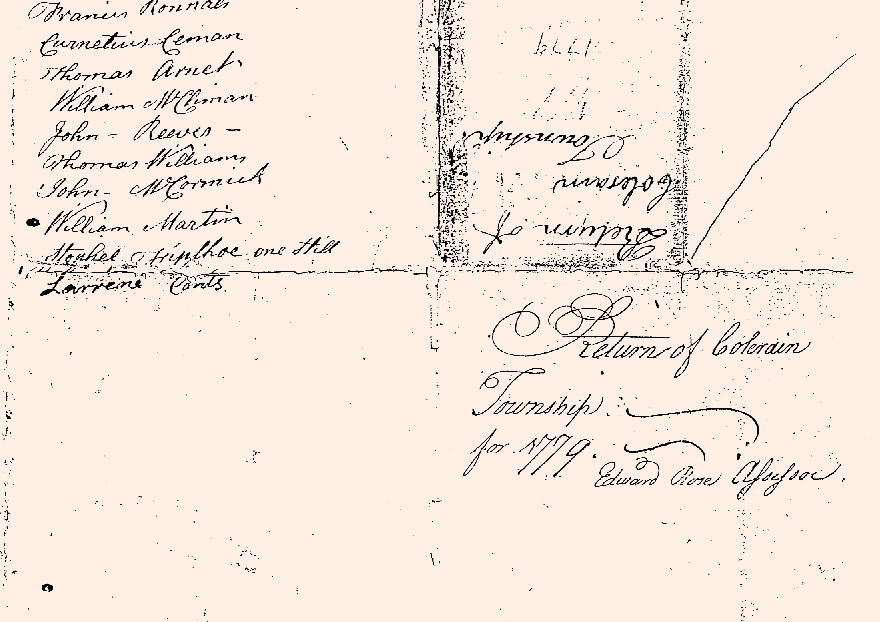 Francis Ronnals
Curnetius Ceman
Thomas Arnet
William McCliman
John - Reeves -
Thomas Williams
John - McCormick
William Martin
one Still
Return of
Colerain
Township
1779
Return of Colerain
Township.
for 1779.
Edward Rose Assessor.